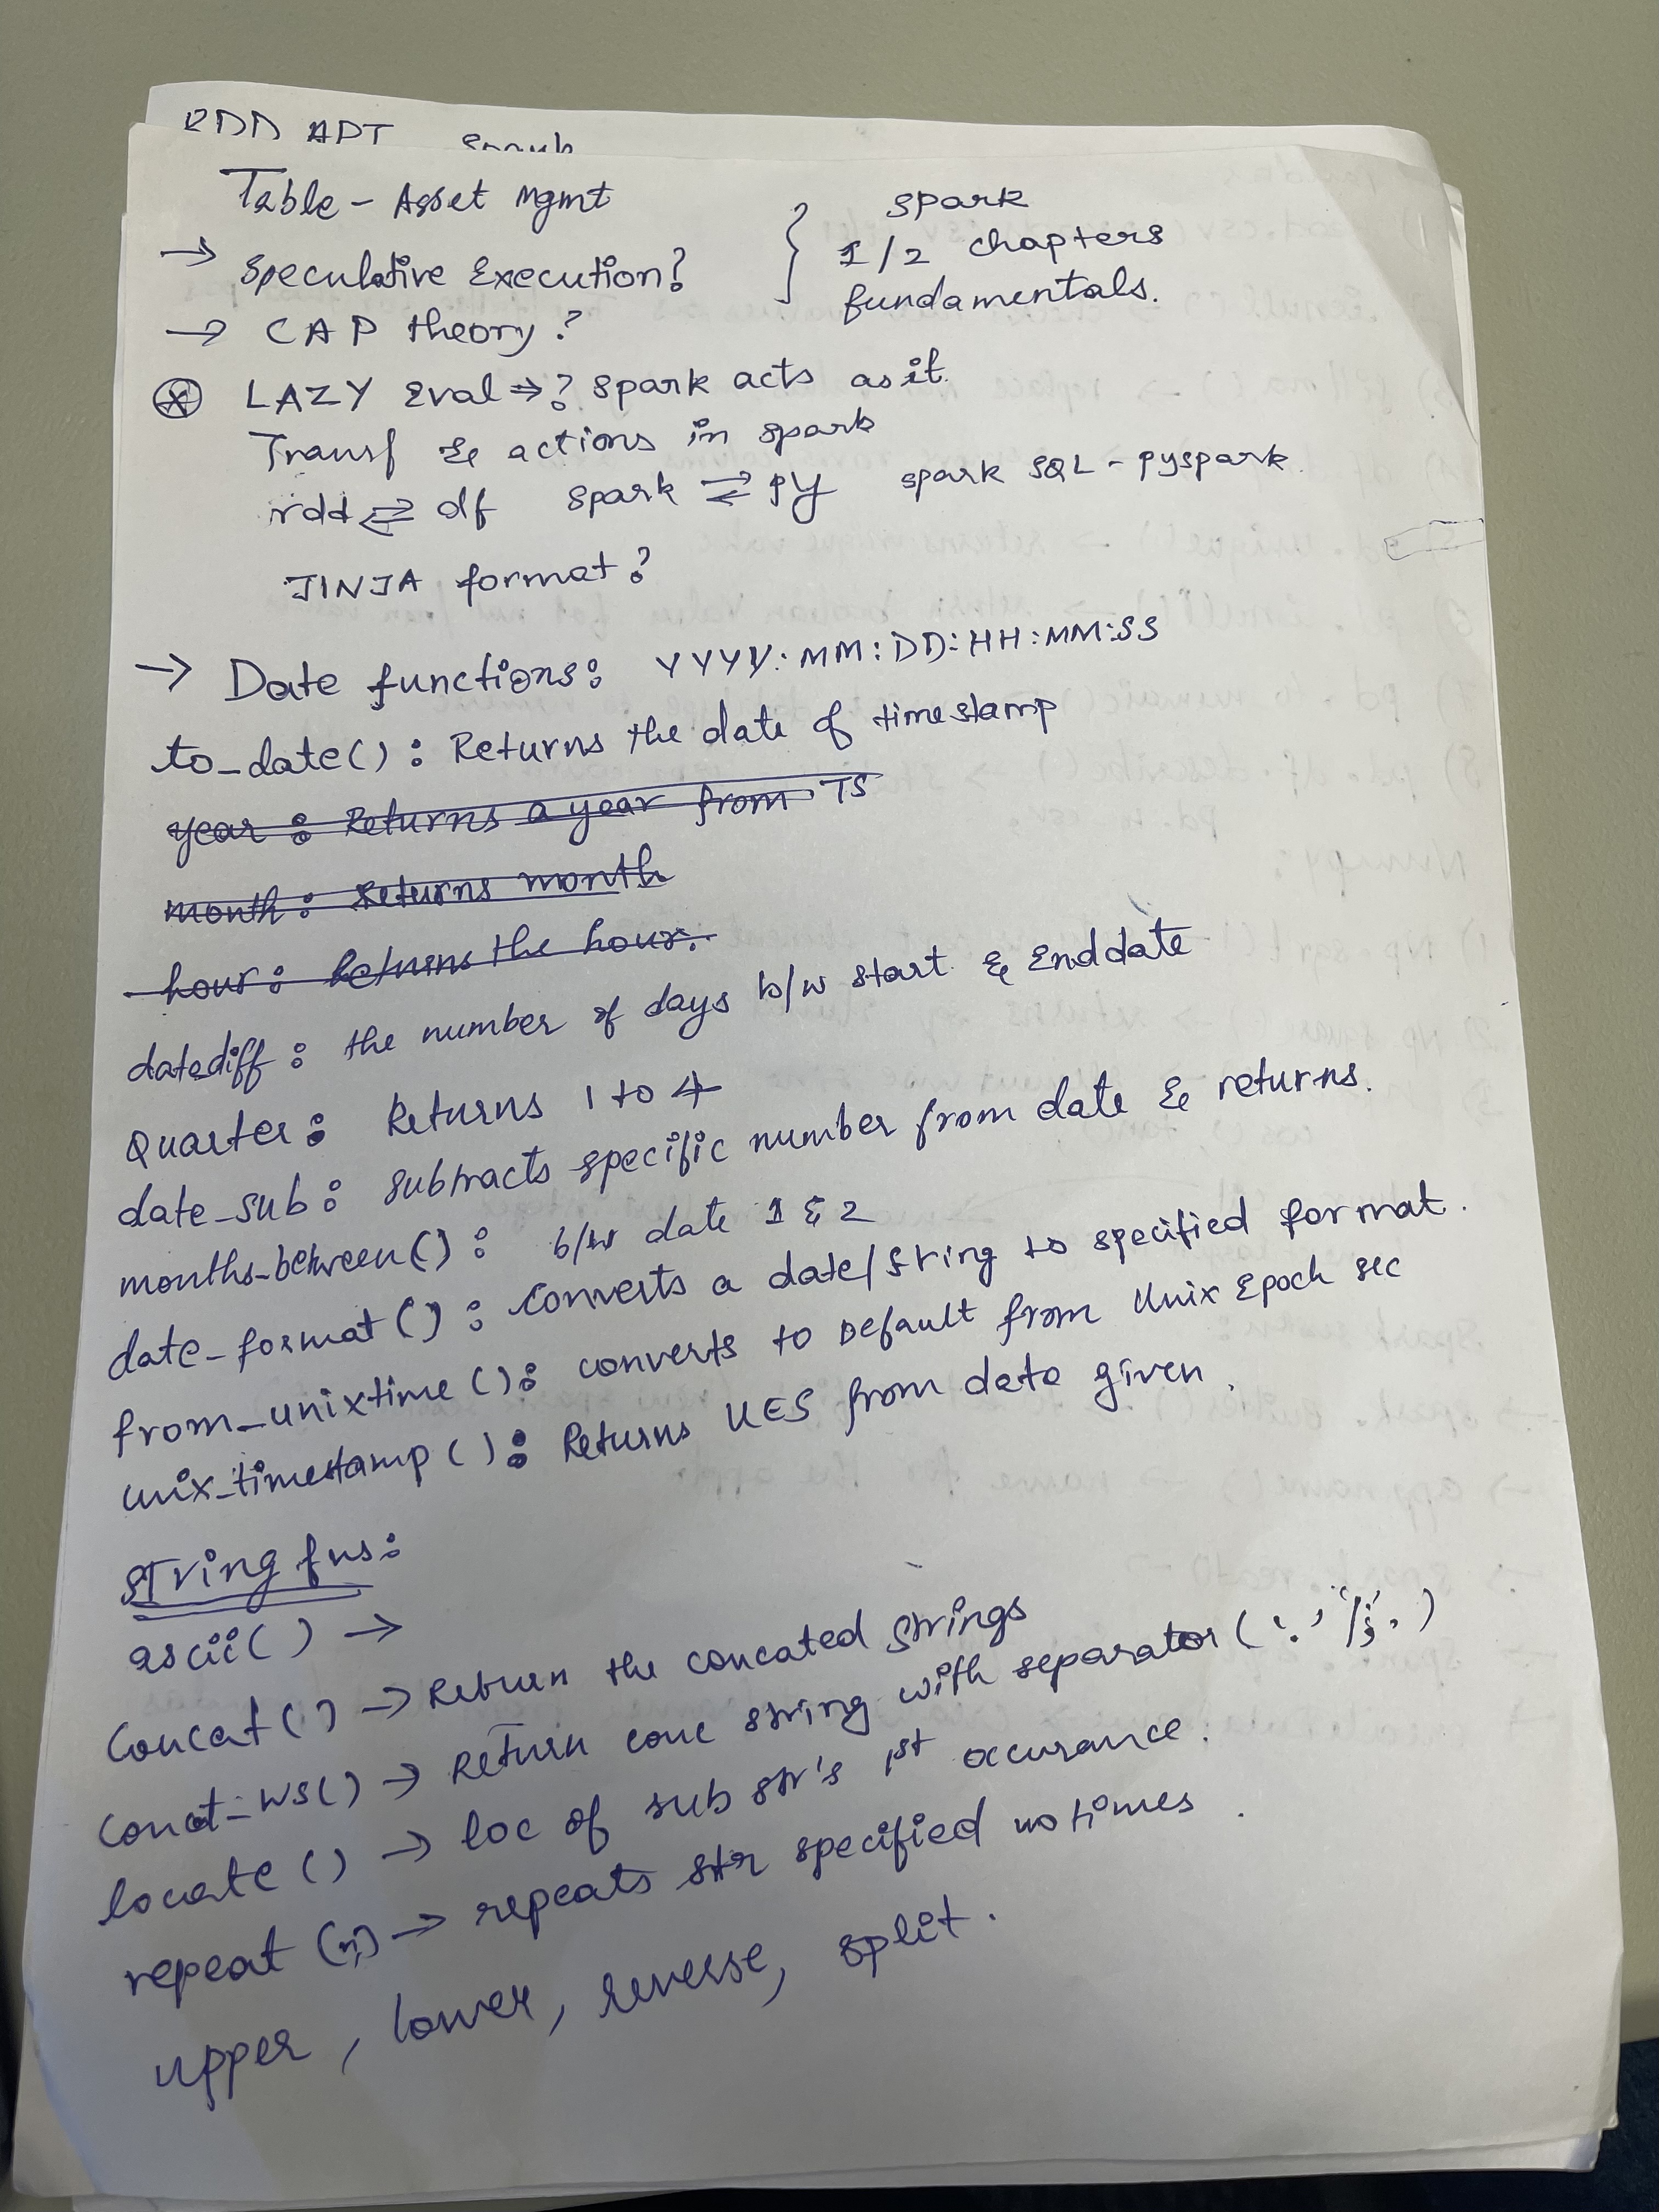 RDD API Spark
Table - Asset Mgmt
→ Speculative Execution?
} spark
1/2 chapters
fundamentals.
→ CAP theory?
LAZY Eval ⇒? spark acts as it.
Transf & actions in spark
rdd ⇄ df spark ⇄ py spark SQL - pyspark.
JINJA format?
→ Date functions: YYYY:MM:DD:HH:MM:SS
to_date(): Returns the date of timestamp
year: Returns a year from TS
month: Returns month
hour: Returns the hour.
datediff: the number of days b/w start & Enddate
Quarter: Returns 1 to 4
date_sub: subtracts specific number from date & returns.
months_between(): b/w date 1 & 2
date_format(): converts a date/string to specified format.
from_unixtime(): converts to Default from Unix Epoch sec
unix_timestamp(): Returns UES from date given.
String fns:
ascii() →
Concat() → Return the concated strings
Concat_ws() → Return conc string with separator
locate() → loc of sub str's 1st occurance.
repeat (n) → repeats str specified no times.
upper, lower, reverse, split.